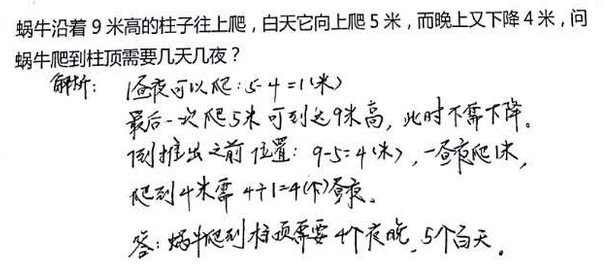 蜗牛沿着9米高的柱子往上爬，白天它向上爬5米，而晚上又下降4米，问
蜗牛爬到柱顶需要几天几夜？
解析： 1昼夜可以爬：5-4=1(米)
最后一次爬5米可到达9米高，此时不需下降。
倒推出之前位置：9-5=4(米)，一昼夜爬1米，
爬到4米需4÷1=4(个)昼夜。
答：蜗牛爬到柱顶需要4个夜晚，5个白天。